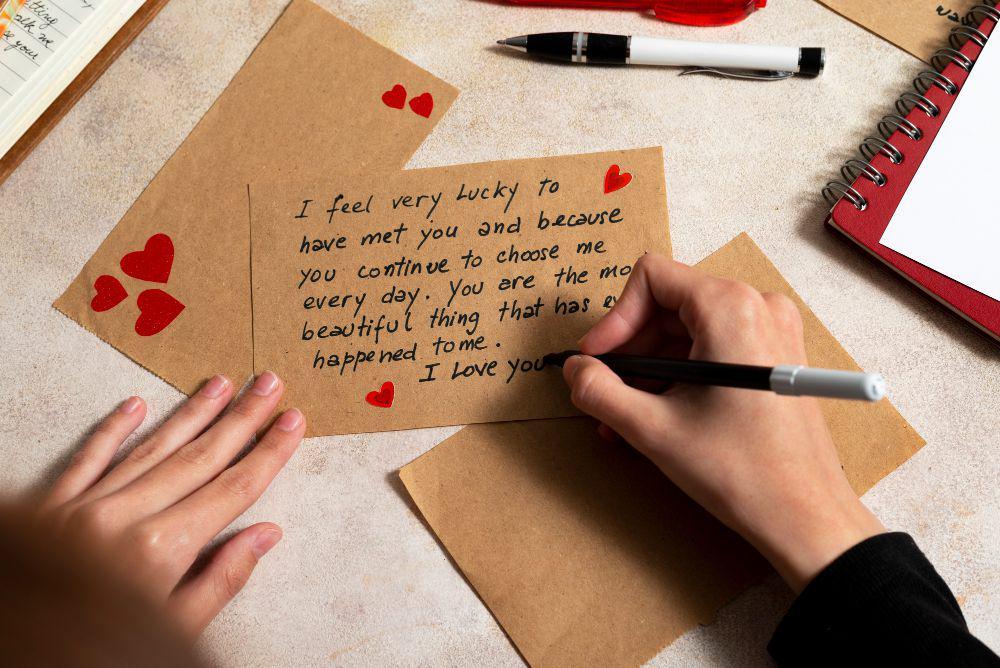 I feel very Lucky to
have met you and because
you continue to choose me
every day. You are the mo
beautiful thing that has e
happened to me.
I Love you